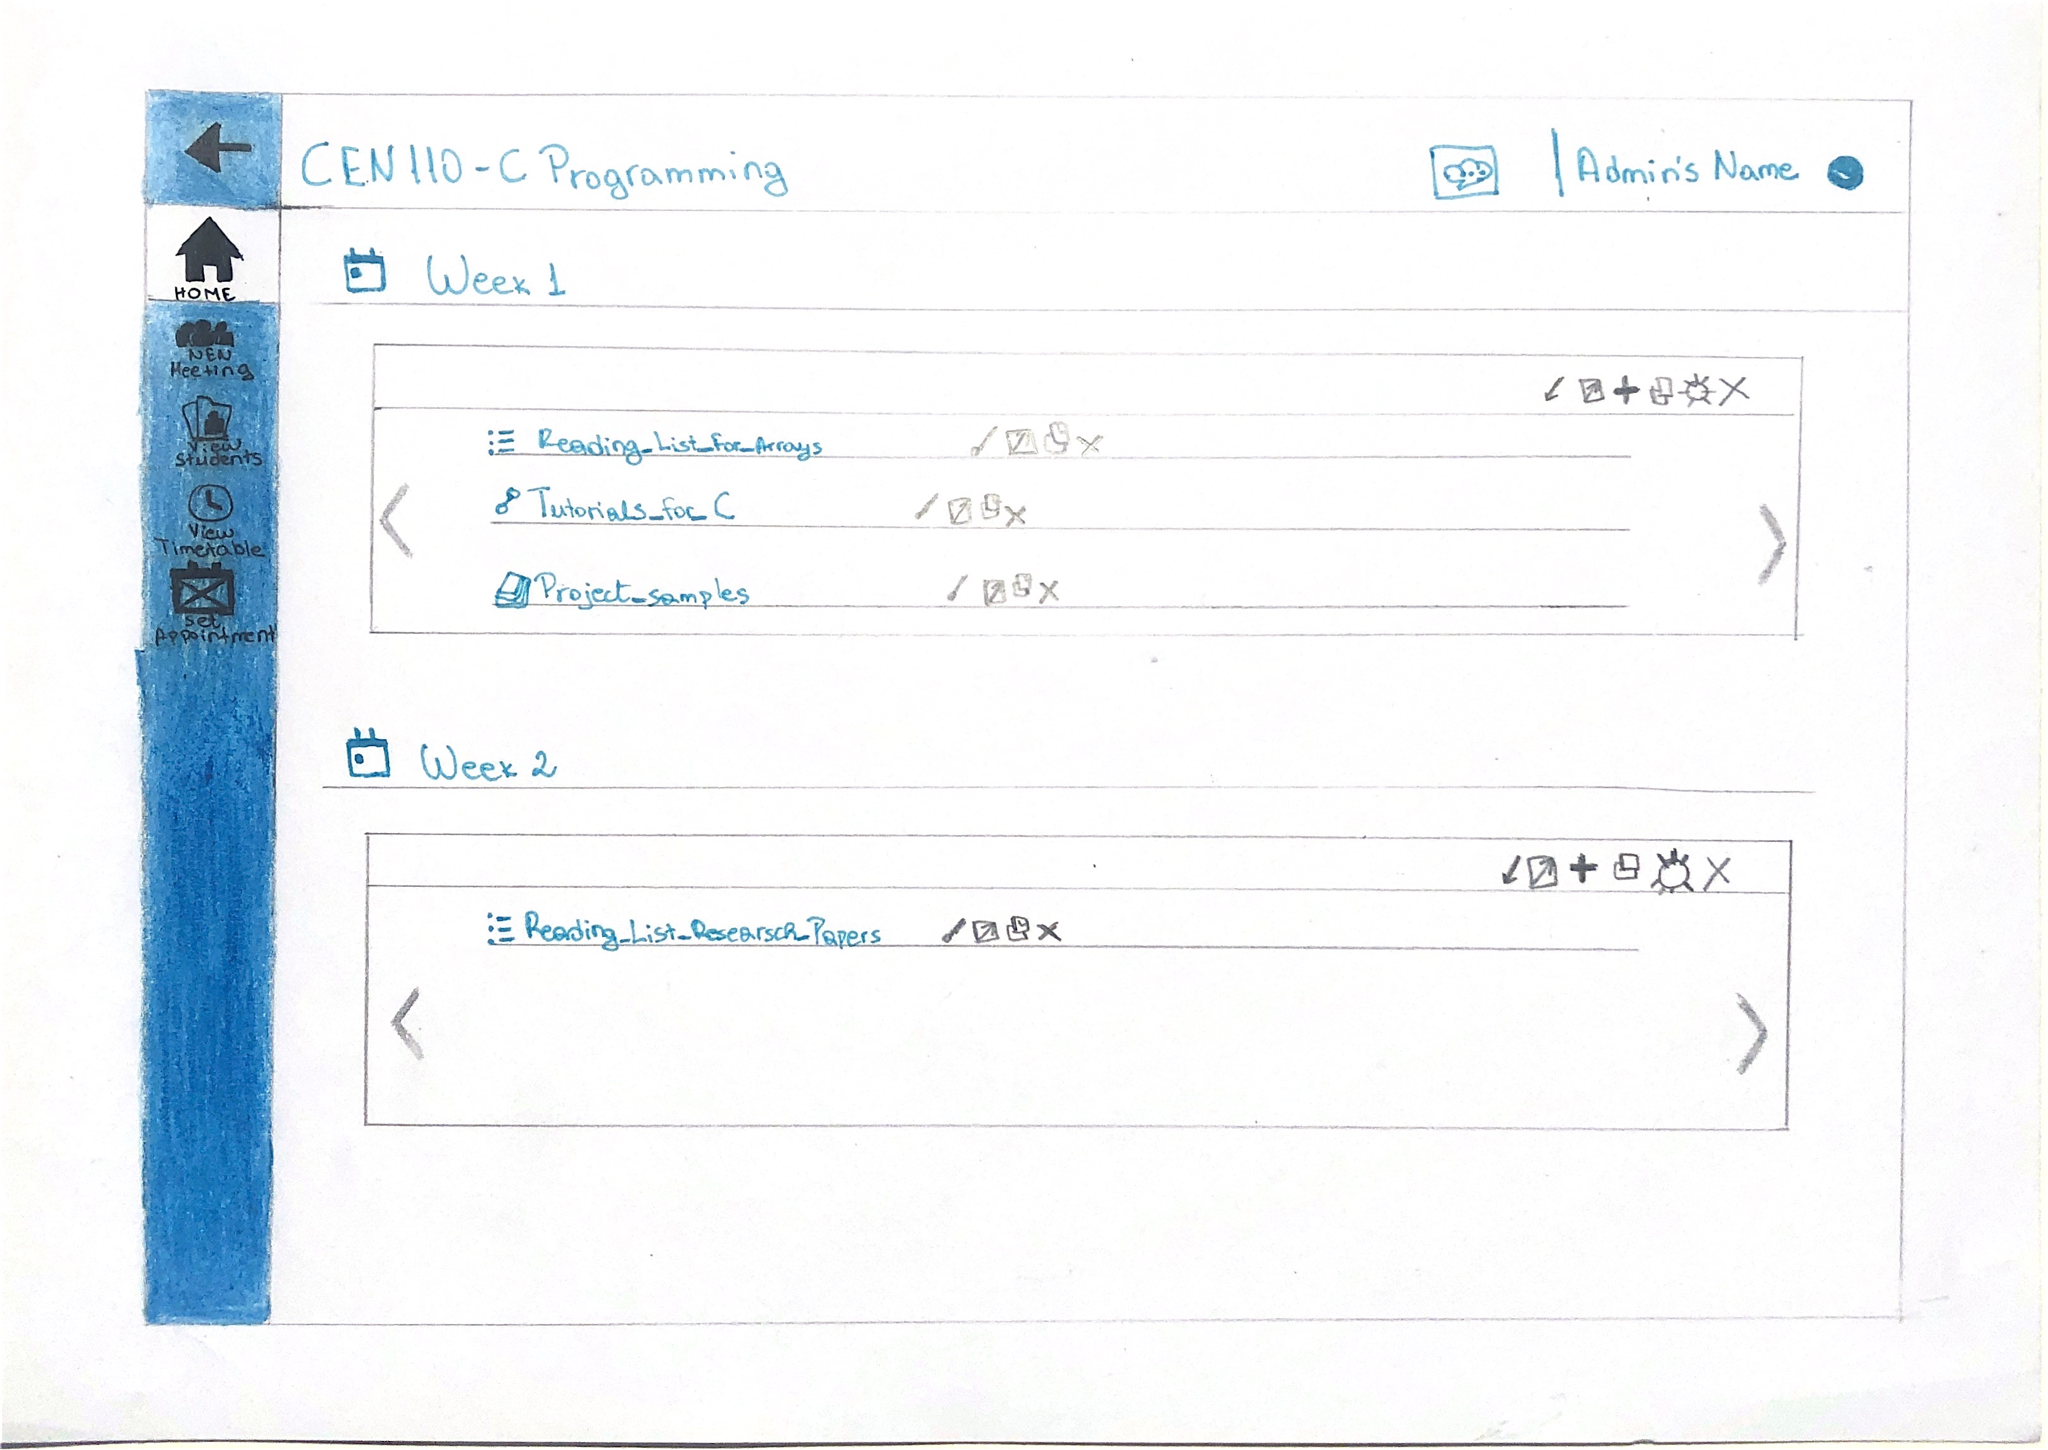 CEN110 - C Programming
Admin's Name
HOME
NEW
Meeting
View
Students
View
Timetable
Set
Appointment
Week 1
Reading_List_For_Arrays
Tutorials_for_C
Project_samples
Week 2
Reading_List_Researsch_Papers